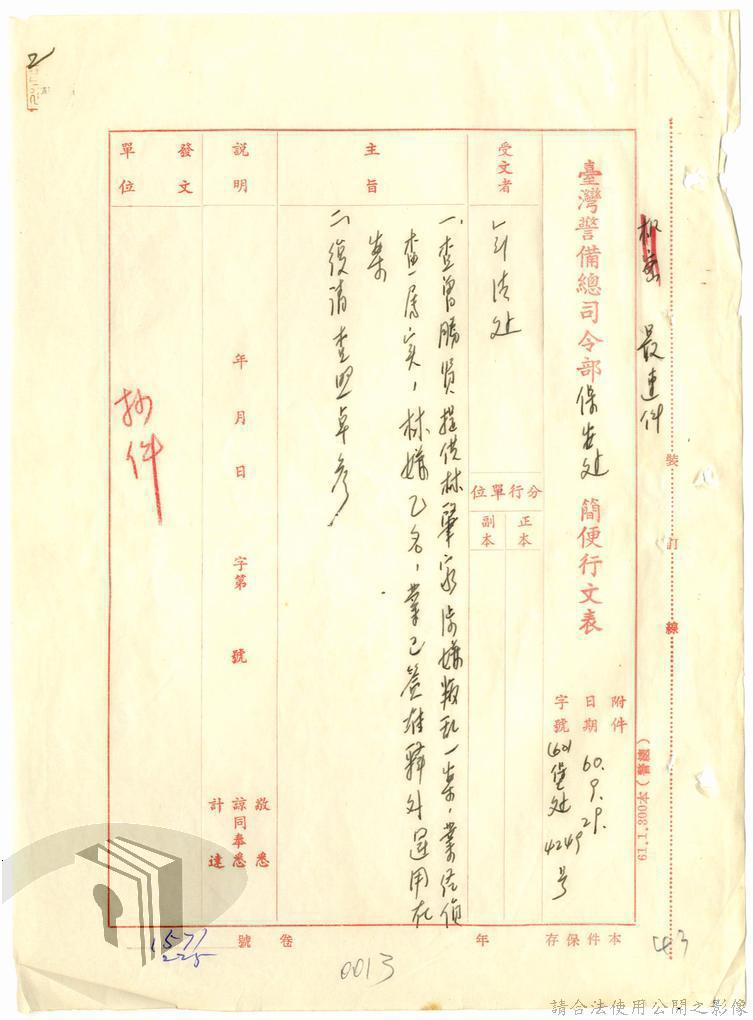 極密 最速件
裝訂線
(警總)61.1.300本
臺灣警備總司令部保安处簡便行文表
附件
日期 60.9.29.
字號 (60)堡处 4249 号
受文者
军法处
分行單位
正本
副本
主旨
一、查曾勝賢提供林肇家涉嫌叛乱一案,業經偵
查属实,林嫌乙名,業已簽准釋外運用在
案
二、復請查照卓参
說明
發文單位
年 月 日 字第 號
敬悉
諒同奉悉
計達
抄件
本件保存 年
卷 號
1571
225
0013
43
請合法使用公開之影像